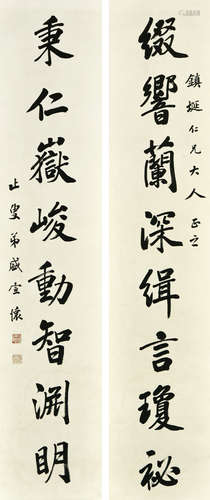 鎮挻仁兄大人正之
綴響蘭深緝言瓊祕
秉仁嶽峻動智淵明
止叟弟盛宣懷